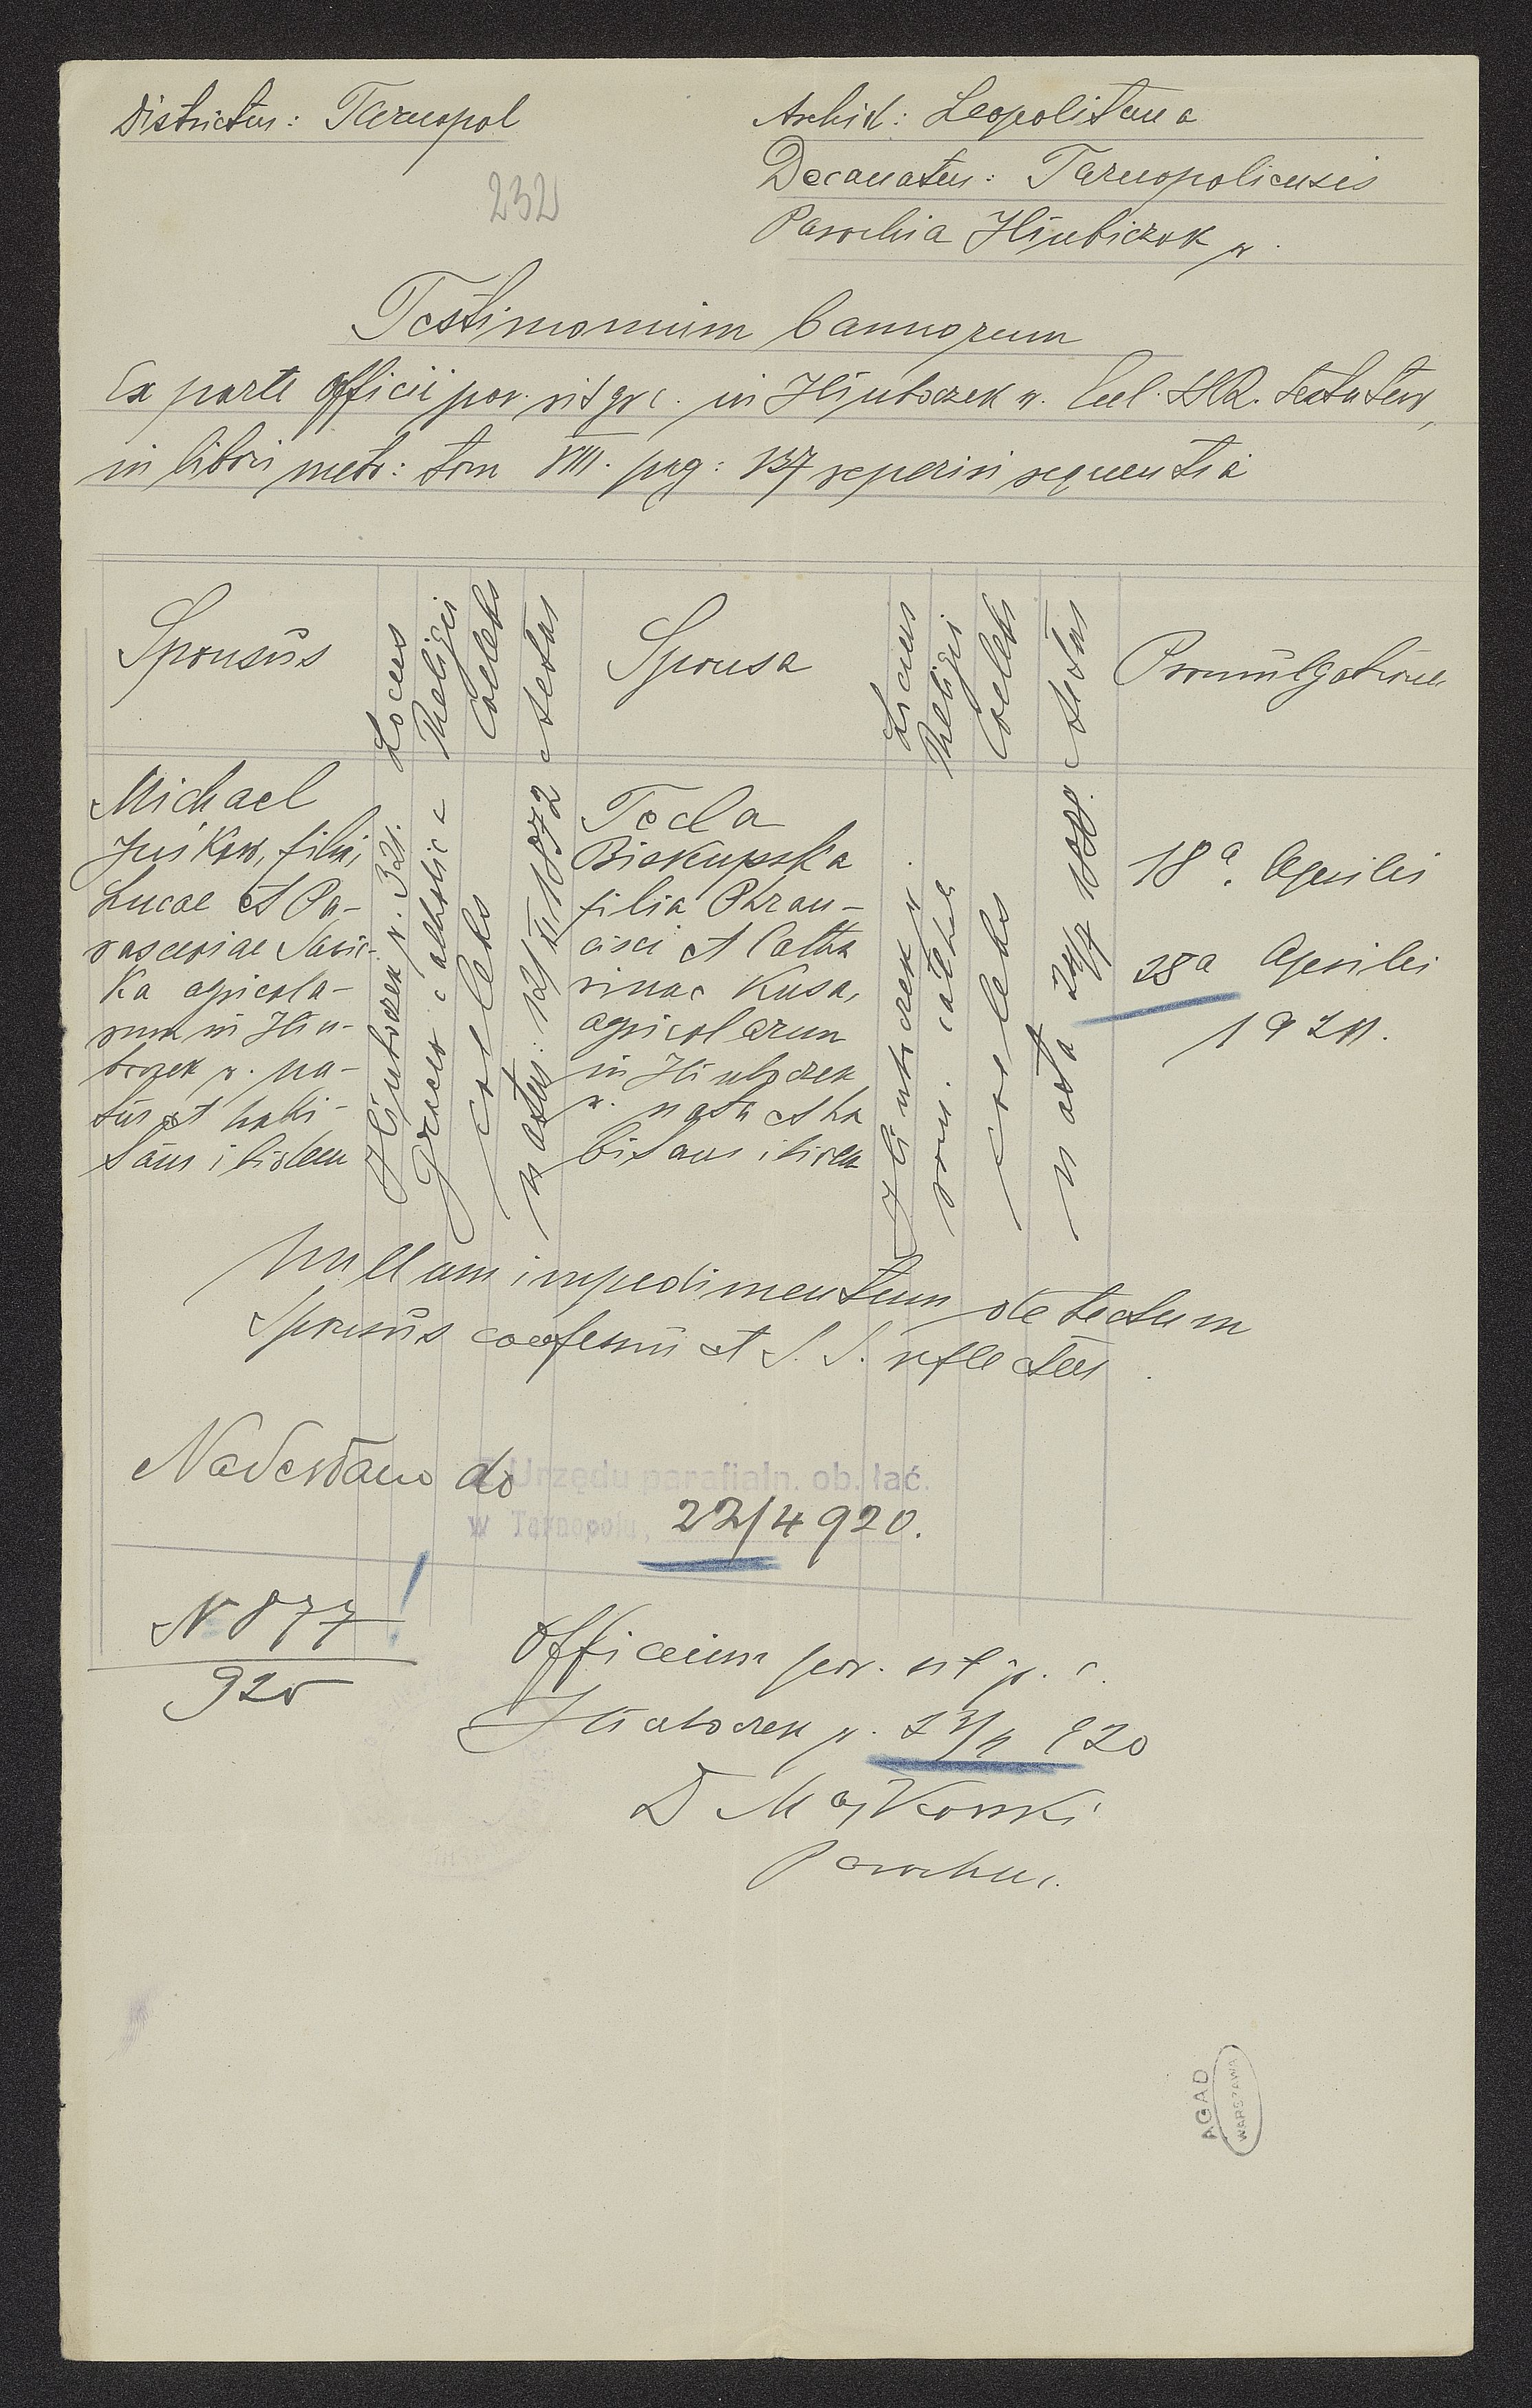 Districtus: Tarnopol
Archid: Leopolitana
Decanatus: Tarnopoliensis
232
Parochia Hłubiczok w.
Testimonium bannorum
Ex parte officii par. rit gr c. in Hłuboczek w. testatur,
in libris metr: tom VIII. pag: 137 reperiri sequentia
Sponsus
Locus
Religio
Coelebs
Aetas
Sponsa
Locus
Religio
Coelebs
Aetas
Promulgationes
Michael
Juśków, filius
Lucae et Pa-
rasceviae Savic-
ka agricola-
rum in Hłu-
boczek w. na-
tus et habi-
tans ibidem
Hłuboczek w. 321.
Graeco catholic
coelebs
natus: 12/XI 1872
Tecla
Biskupska
filia Phran-
cisci et Catha
rinae Kusa,
agricolarum
in Hłuboczek
w. nata et ha
bitans ibidem
Hłuboczek w.
rom. cathol
coelebs
nata 24/7
18a. Aprilis
28a Aprilis
1920.
Nullum impedimentum detectum
Sponsus confessus et S. S. refectus.
Nadesłano do
Urzędu parafialn. ob. łać.
w Tarnopolu, 22/4 920.
N 877
920
Officium par. rit gr. c.
Hłuboczek w. 920
D Majkowski
Parochus.
AGAD
WARSZAWA